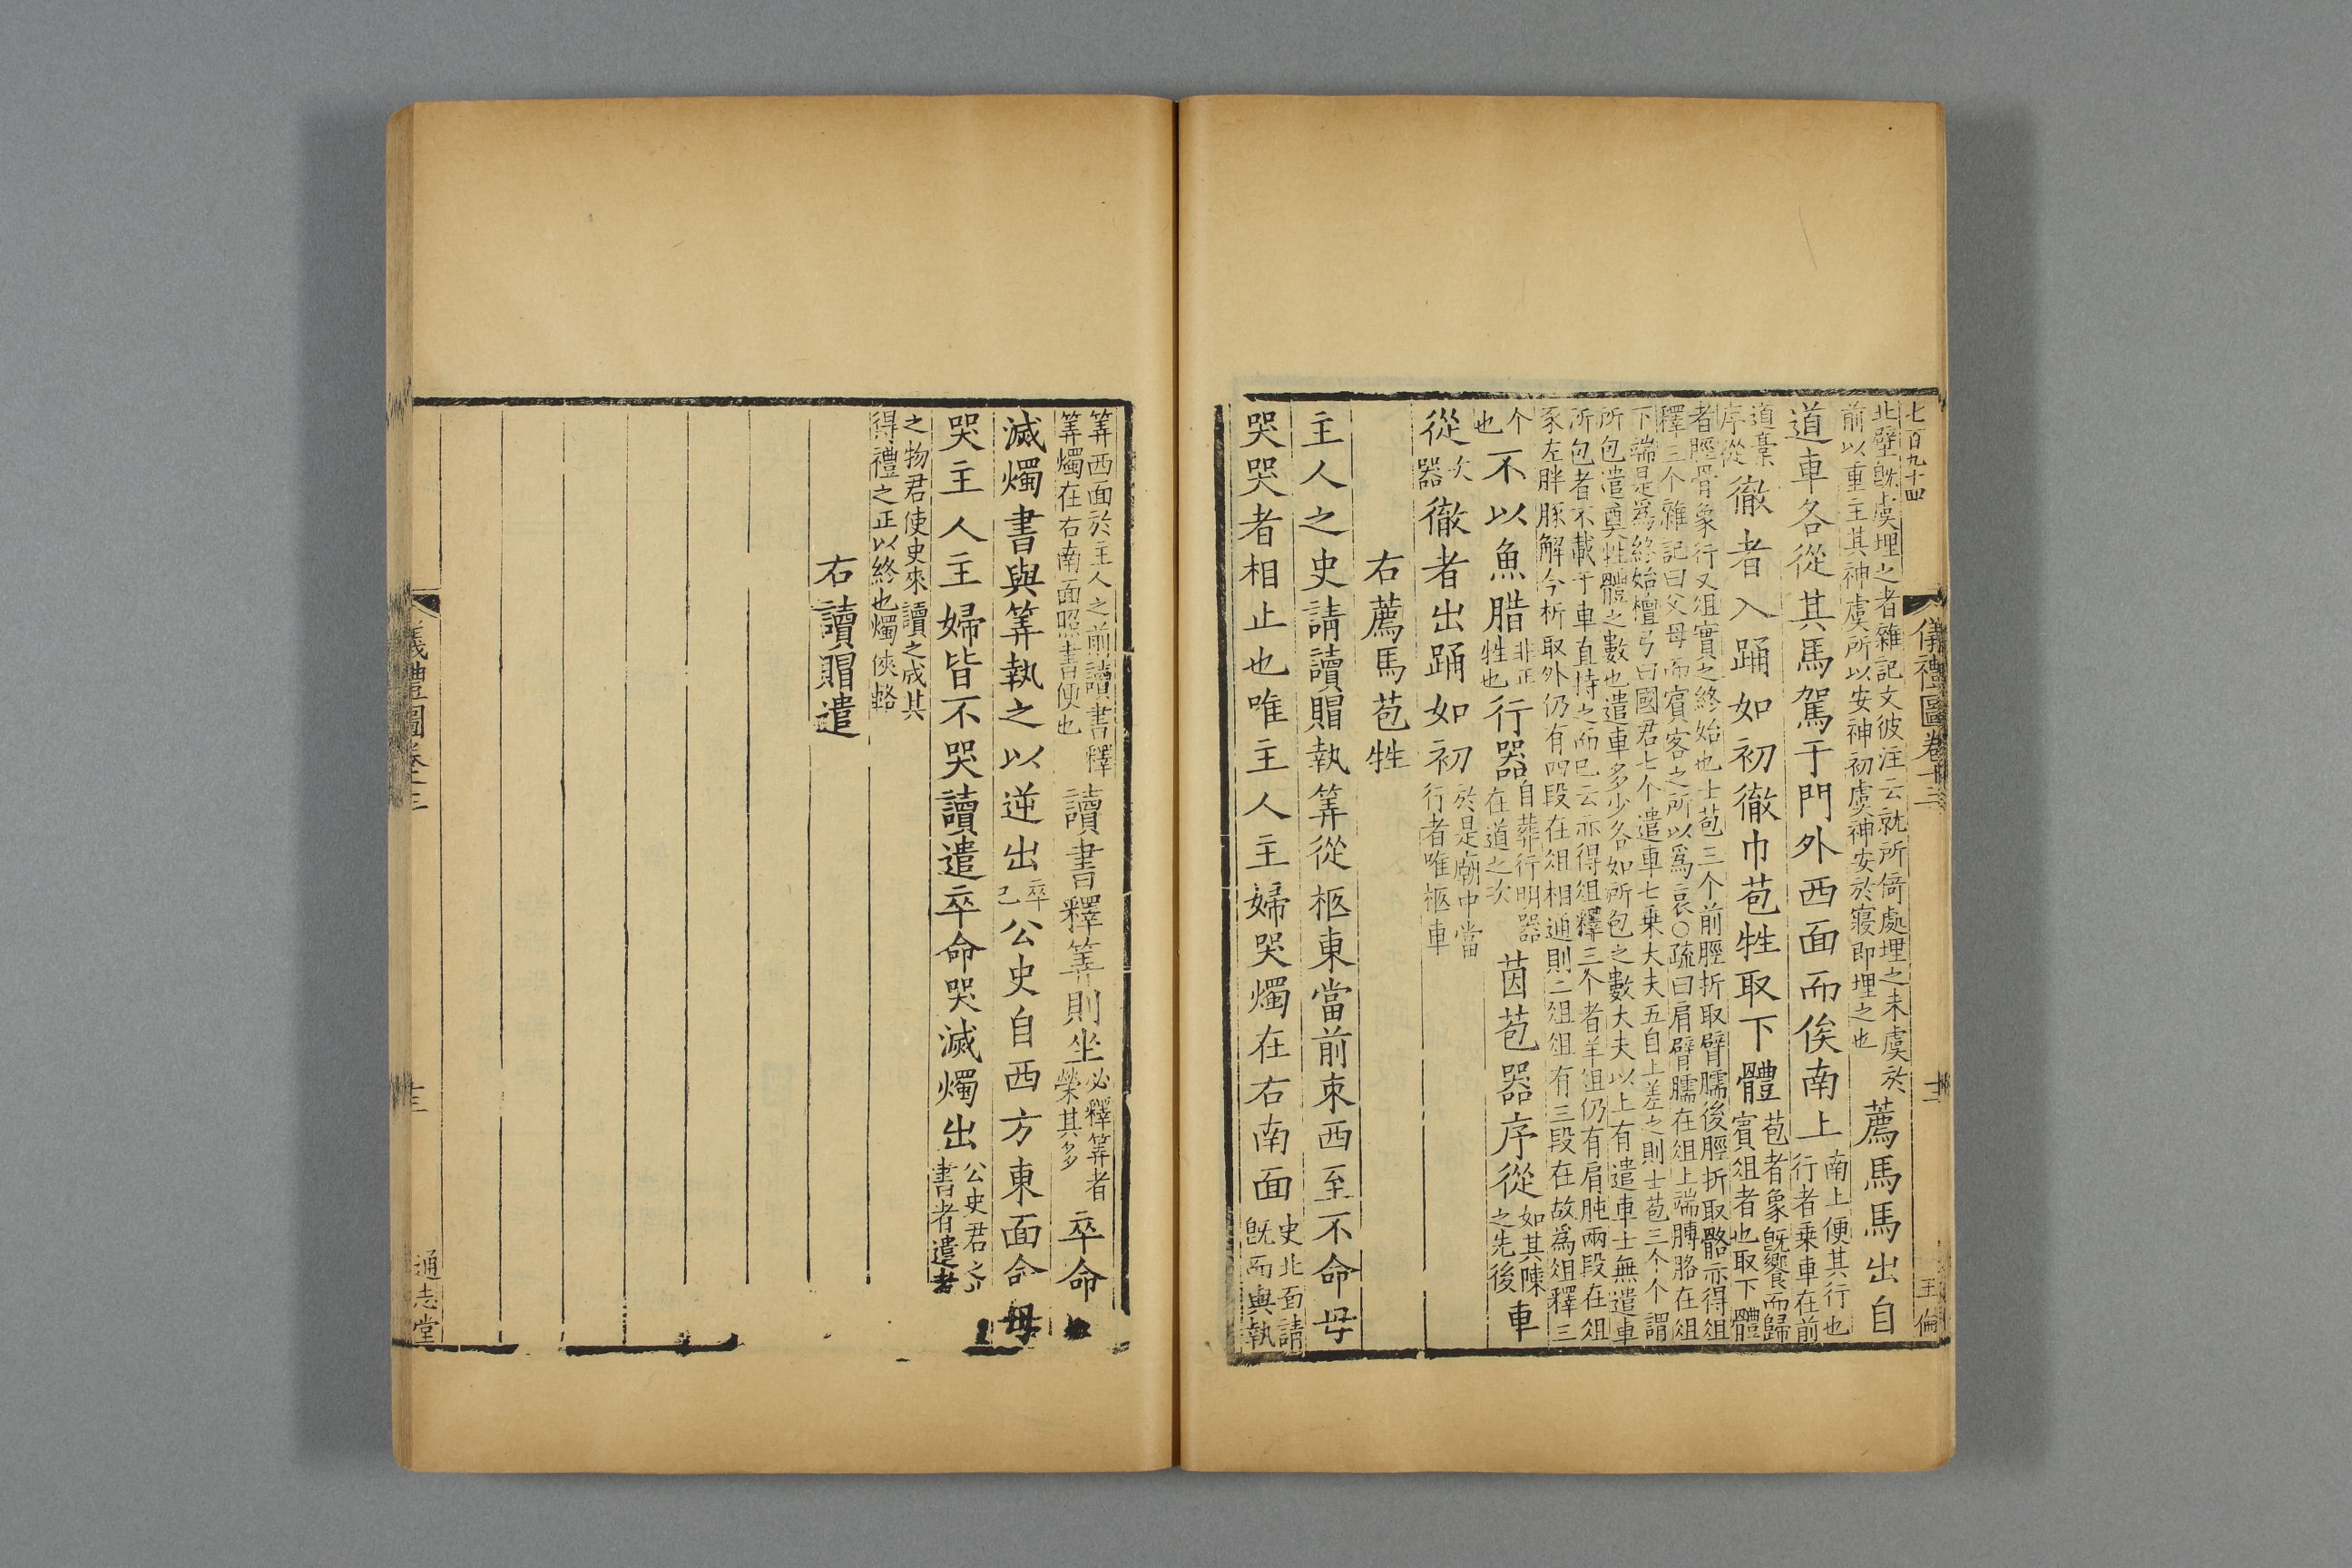 七百九十四
儀禮圖卷十三
十二
王倫
北壁旣虞埋之者雜記文彼注云就所倚處埋之未虞於
前以重主其神虞所以安神初虞神安於寢即埋之也
薦馬馬出自
道車各從其馬駕于門外西面而俟南上
南上便其行也
行者乗車在前
道槀
序從
徹者入踊如初徹巾苞牲取下體
苞者象旣饗而歸
賓俎者也取下體
者脛骨象行又俎實之終始也士苞三个前脛折取臂臑後脛折取骼亦得俎
釋三个雜記曰父母而賓客之所以爲哀○疏曰肩臂臑在俎上端膊胳在俎
下端是爲終始檀弓曰國君七个遣車七乗大夫五自上差之則士苞三个个謂
所包遣奠牲體之數也遣車多少各如所包之數大夫以上有遣車士無遣車
所包者不載于車直持之而已云亦得俎釋三个者羊俎仍有肩肫兩段在俎
豕左胖豚解今析取外仍有四段在俎相通則二俎俎有三段在故爲俎釋三
个
也
不以魚腊
非正
牲也
行器
自葬行明器
在道之次
茵苞器序從
如其陳
之先後
車
從
次
器
徹者出踊如初
於是廟中當
行者唯柩車
右薦馬苞牲
主人之史請讀賵執筭從柩東當前束西面不命毋
哭哭者相止也唯主人主婦哭燭在右南面
史北面請
旣而與執
筭西面於主人之前讀書釋
筭燭在右南面照書便也
讀書釋筭則坐
必釋筭者
榮其多
卒命
滅燭書與筭執之以逆出
卒
已
公史自西方東面命毋
哭主人主婦皆不哭讀遣卒命哭滅燭出
公史君之
書者遣者
之物君使史來讀之成其
得禮之正以終也燭俠輅
右讀賵遣
儀禮圖卷十三
十三
通志堂